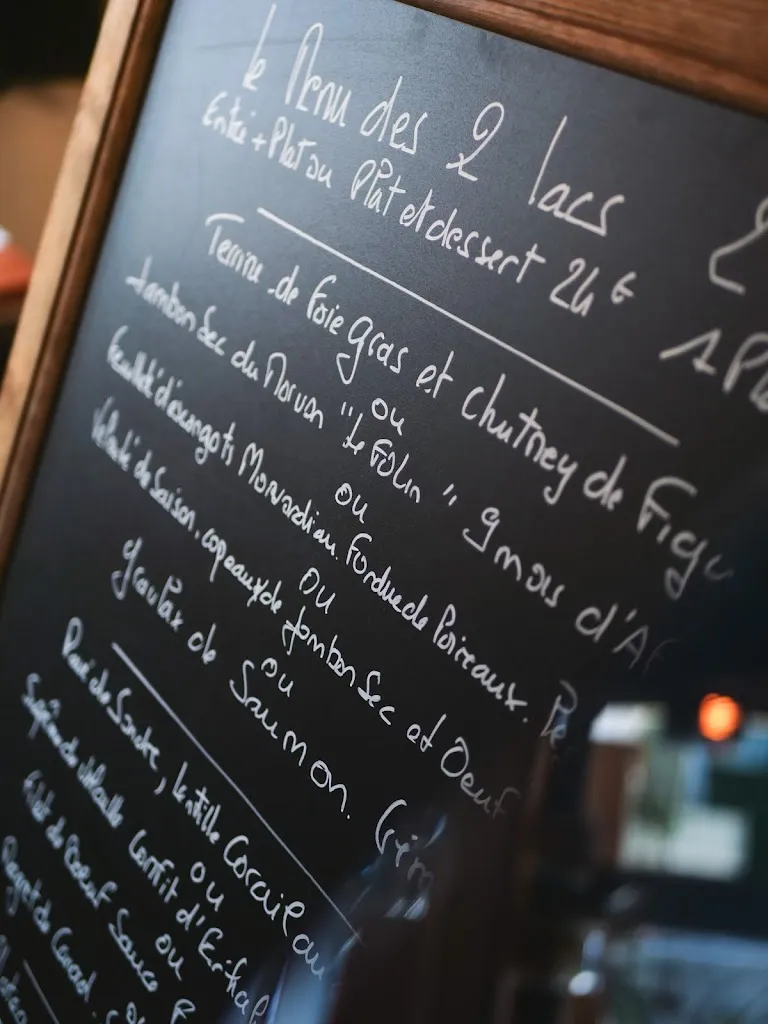 le Menu des 2 lacs 2
Entrée + Plat ou Plat et dessert 24€ A Pla
Terrine de Foie gras et chutney de Figu
ou
Jambon Sec du Morvan "Le Folin" 9 mois d'Af
ou
Feuilleté d'escargots Morvandiau. Fondue de Poireaux. Pe
ou
Velouté de Saison, copeaux de Jambon Sec et Oeuf
ou
gravlax de Saumon. Crèm
Pavé de Sandre, lentille Corail
ou
Suprême de Confit d'
ou
Filet de Boeuf Sauce
Magret de Canard.